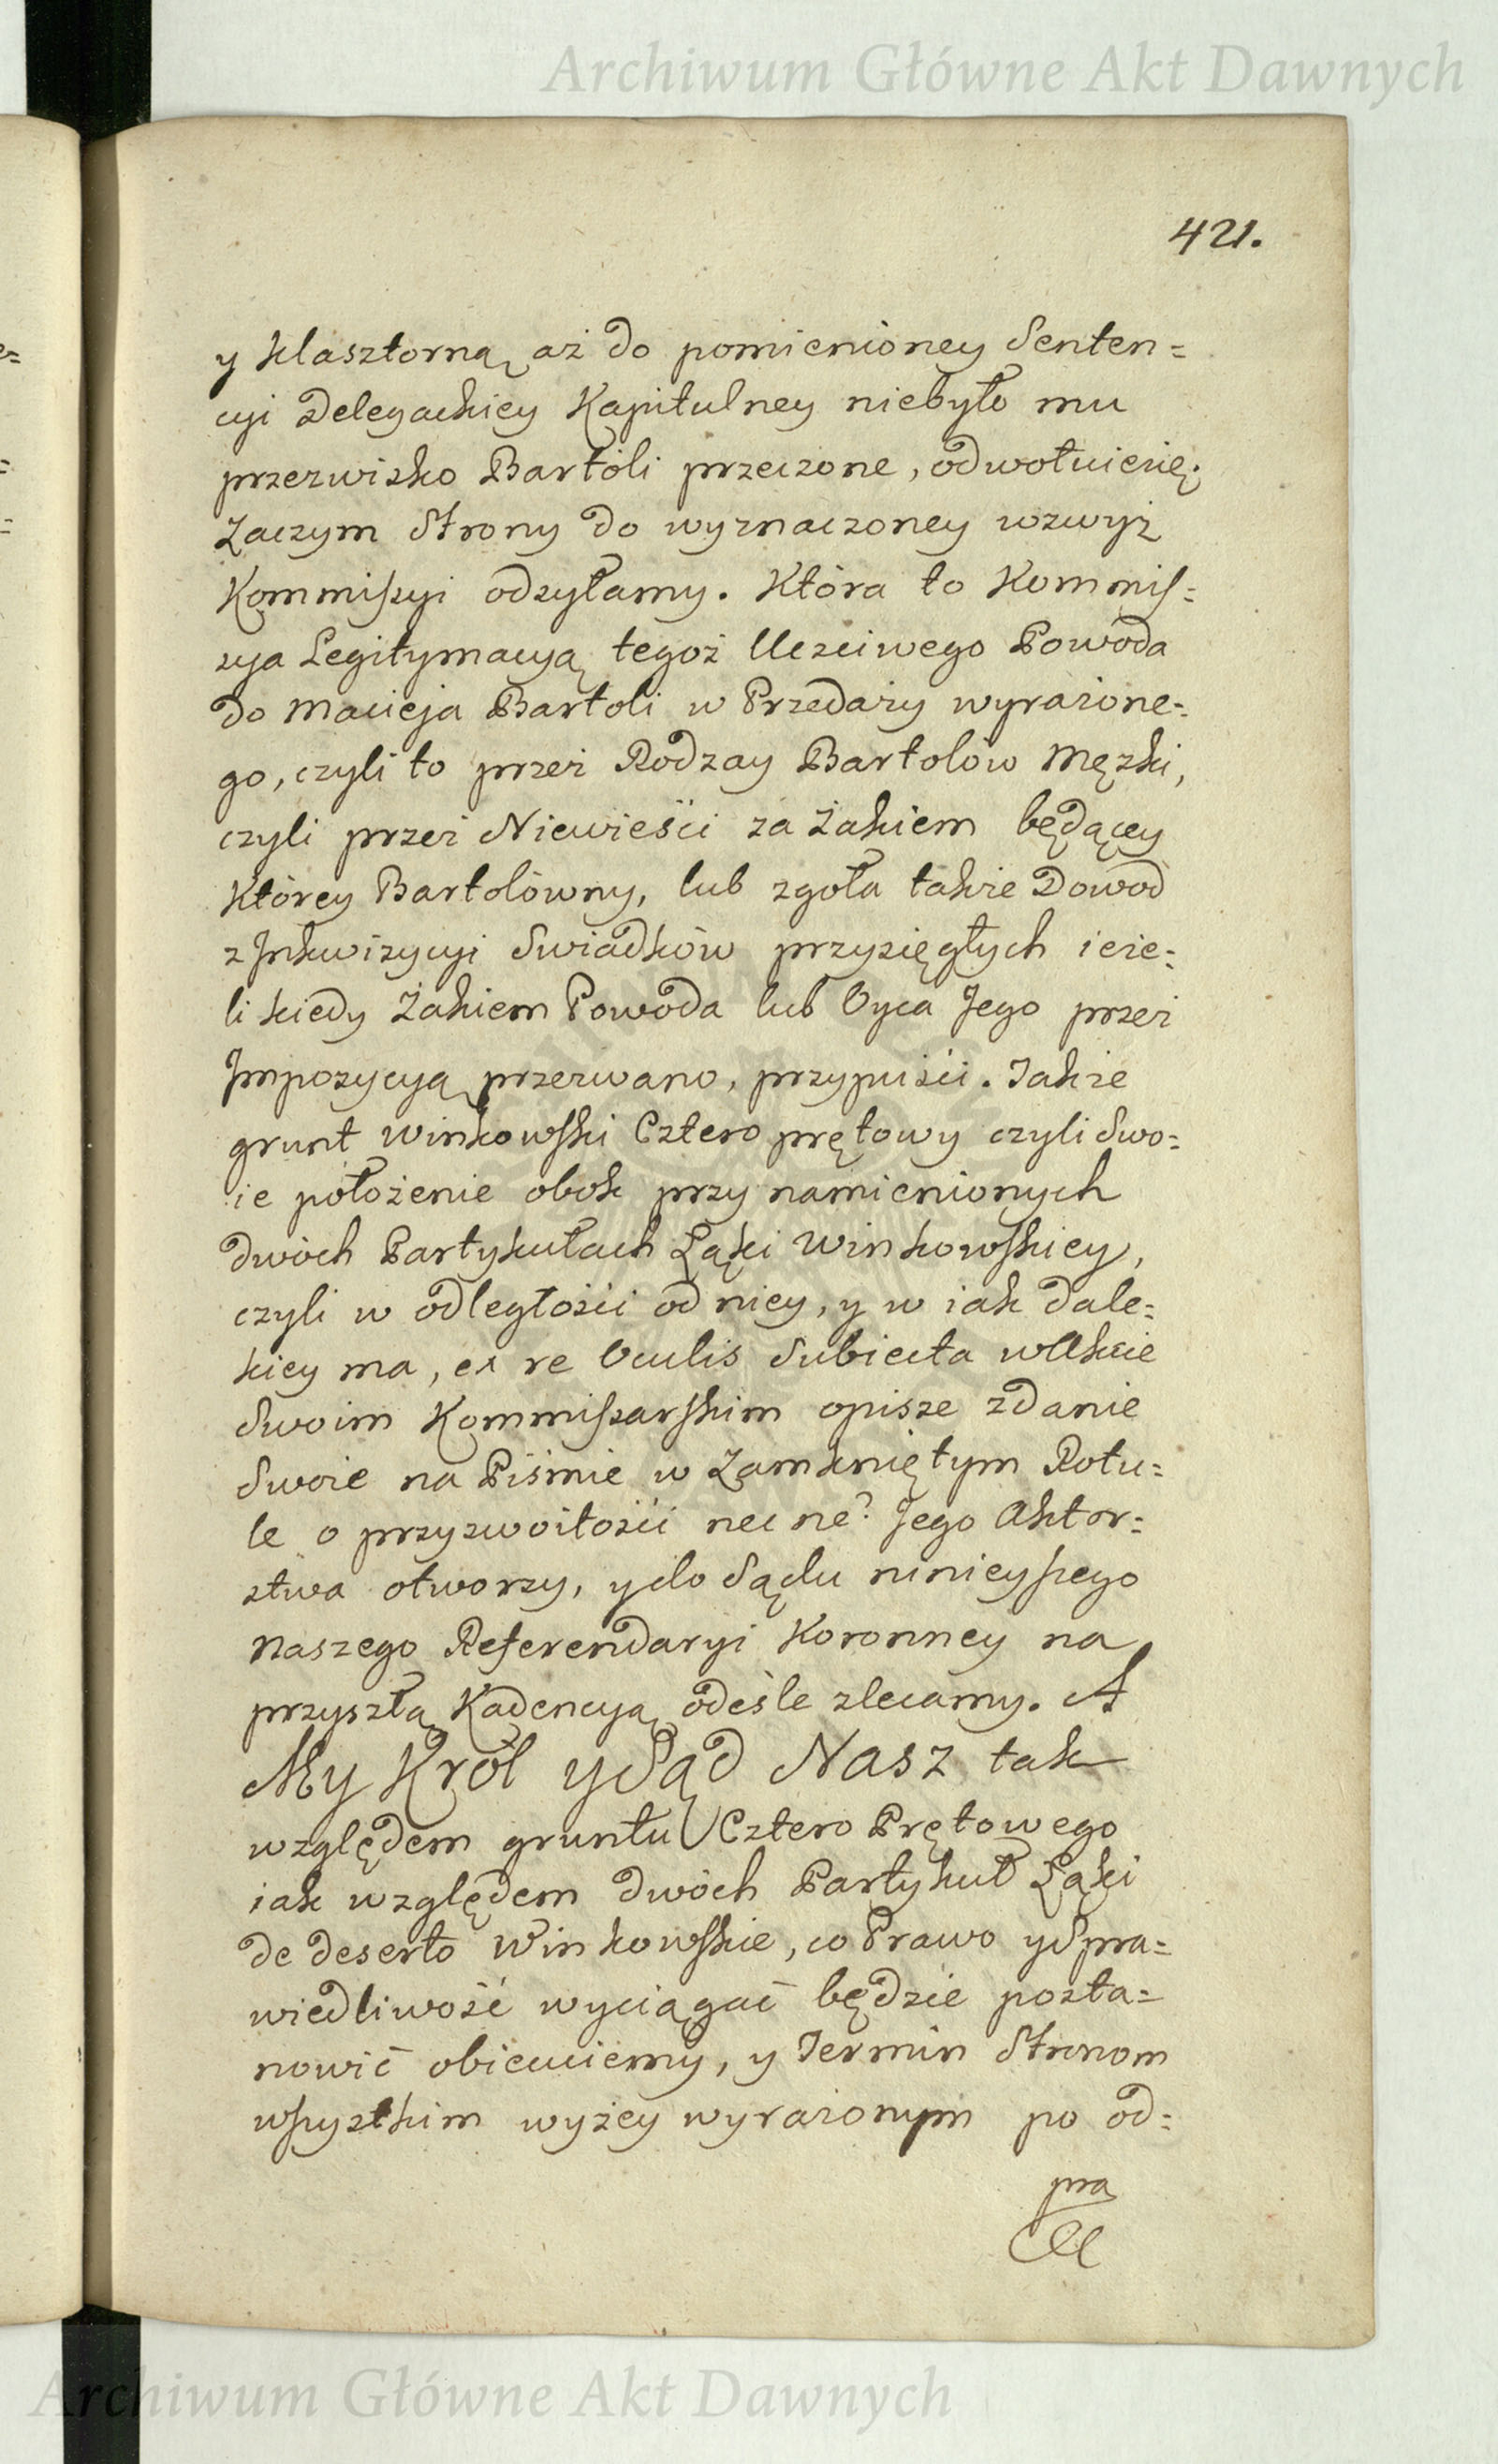 Archiwum Główne Akt Dawnych
421.
y klasztorną aż do pomienioney Senten=
cyi Delegackiey Kapitulney niebyło mu
przezwisko Bartóli przeczone, odwołuiesię;
Zaczym Strony do wyznaczoney wzwyż
Kommiſsyi odsyłamy. Która to Kommiſ=
sya Legitymacyą tegoż Uczciwego Powoda
do Macieja Bartoli w Przedaży wyrażone=
go, czyli to przez Rodzay Bartolów Męzki,
czyli przez Niewieści za Zakiem będącey
Którey Bartolówny, lub zgoła także Dowod
z Inkwizycyi Swiadków przysięgłych ieże=
li kiedy Zakiem Powoda lub Oyca Jego przez
Impozycyą przezwano, przypuści. Także
grunt Winkowſki Cztero prętowy czyli Swo=
ie położenie obok przy namienionych
dwóch Partykułach Łąki Winkowſkiey,
czyli w odległości od niey, y w iak dale=
kiey ma, ex re Oculis Subiecta w Akcie
Swoim Kommiſsarſkim opisze zdanie
Swoie na Piśmie w Zamkniętym Rotu=
le o przyzwoitości nec ne? Jego Aktor=
stwa otworzy, y do Sądu ninieyſzego
Naszego Referendaryi Koronney na
przyszłą Kadencyą odeśle zlecamy. A
My Król y Sąd Nasz tak
względem gruntu Cztero Prętowego
iak względem dwóch Partykuł Łąki
de deserto Winkowſkie, co Prawo y Spra=
wiedliwość wyciągać będzie posta=
nowić obiecuiemy, y Termin Stronom
wſzystkim wyżey wyrażonym po od=
pra
Archiwum Główne Akt Dawnych